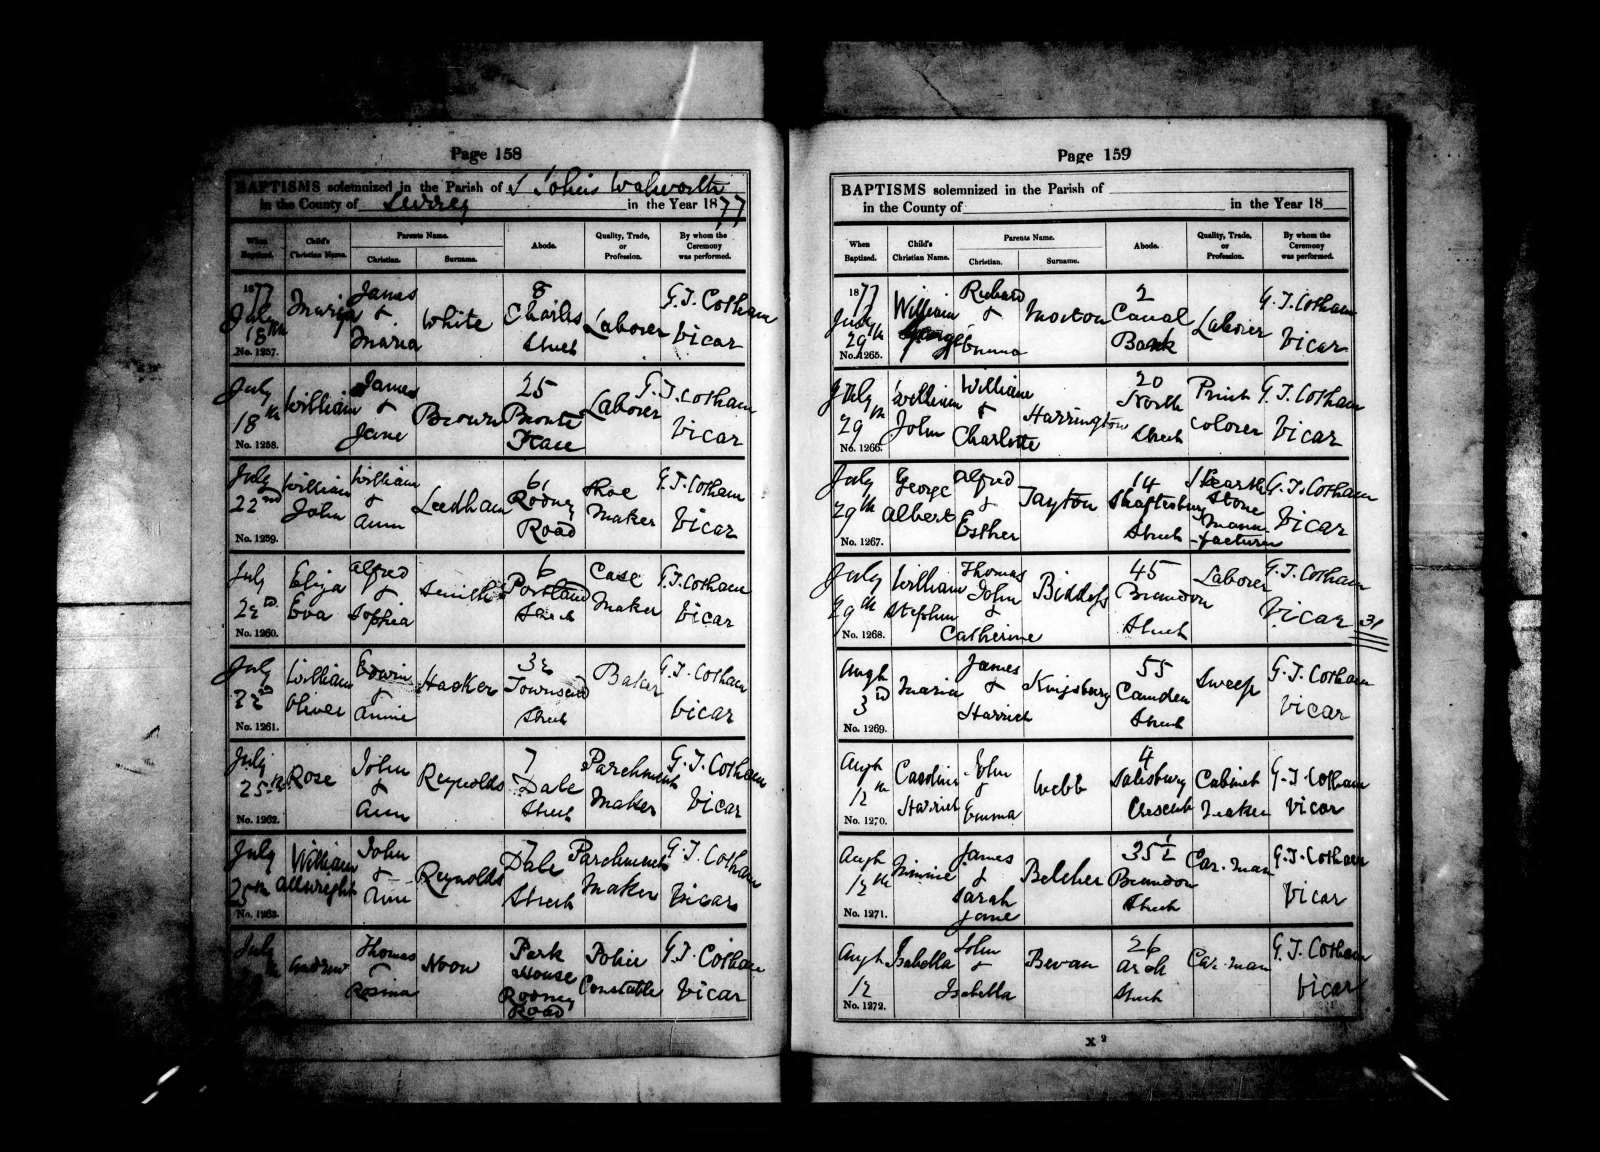 Page 158
BAPTISMS solemnized in the Parish of S. Johns Walworth
in the County of Surrey in the Year 1877
When Baptized. Child's Christian Name. Parents Name. Christian. Surname. Abode. Quality, Trade, or Profession. By whom the Ceremony was performed.
1877 July 18th Maria James & Maria White 8 Charles Street Laborer G.T. Cotham Vicar
No. 1257.
July 18th William James & Jane Brown 25 Bronte Place Laborer G.T. Cotham Vicar
No. 1258.
July 22nd William John William & Ann Leedham 61 Rodney Road Shoe Maker G.T. Cotham Vicar
No. 1259.
July 22D Eliza Eva Alfred & Sophia Smith 6 Portland Street Case Maker G.T. Cotham Vicar
No. 1260.
July 22D William Oliver Edwin & Annie Hasker 32 Townsend Street Baker G.T. Cotham Vicar
No. 1261.
July 25th Rose John & Ann Reynolds 7 Dale Street Parchment Maker G.T. Cotham Vicar
No. 1262.
July 25th William Allwright John & Ann Reynolds 7 Dale Street Parchment Maker G.T. Cotham Vicar
No. 1263.
July Andrew Thomas & Rosina Noon Park House Rodney Road Police Constable G.T. Cotham Vicar
Page 159
BAPTISMS solemnized in the Parish of
in the County of in the Year 18
When Baptized. Child's Christian Name. Parents Name. Christian. Surname. Abode. Quality, Trade, or Profession. By whom the Ceremony was performed.
1877 July 29th William George Richard & Emma Morton 2 Canal Bank Laborer G.T. Cotham Vicar
No. 1265.
July 29th William John William & Charlotte Harrington 20 North Street Print Colorer G.T. Cotham Vicar
No. 1266.
July 29th George Albert Alfred & Esther Tayton 14 Shaftesbury Street Hearth Stone Manufacturer G.T. Cotham Vicar
No. 1267.
July 29th William Stephen Thomas John & Catherine Biddofs 45 Brandon Street Laborer G.T. Cotham Vicar 31
No. 1268.
Augt 3D Maria James & Harriet Kingsbury 55 Camden Street Sweep G.T. Cotham Vicar
No. 1269.
Augt 12th Caroline Harriet John & Emma Webb 4 Salisbury Crescent Cabinet Maker G.T. Cotham Vicar
No. 1270.
Augt 12th Minnie James & Sarah Jane Belcher 35½ Brandon Street Car-man G.T. Cotham Vicar
No. 1271.
Augt 12 Isabella John & Isabella Bevan 26 Arch Street Car-man G.T. Cotham Vicar
No. 1272.
X 2